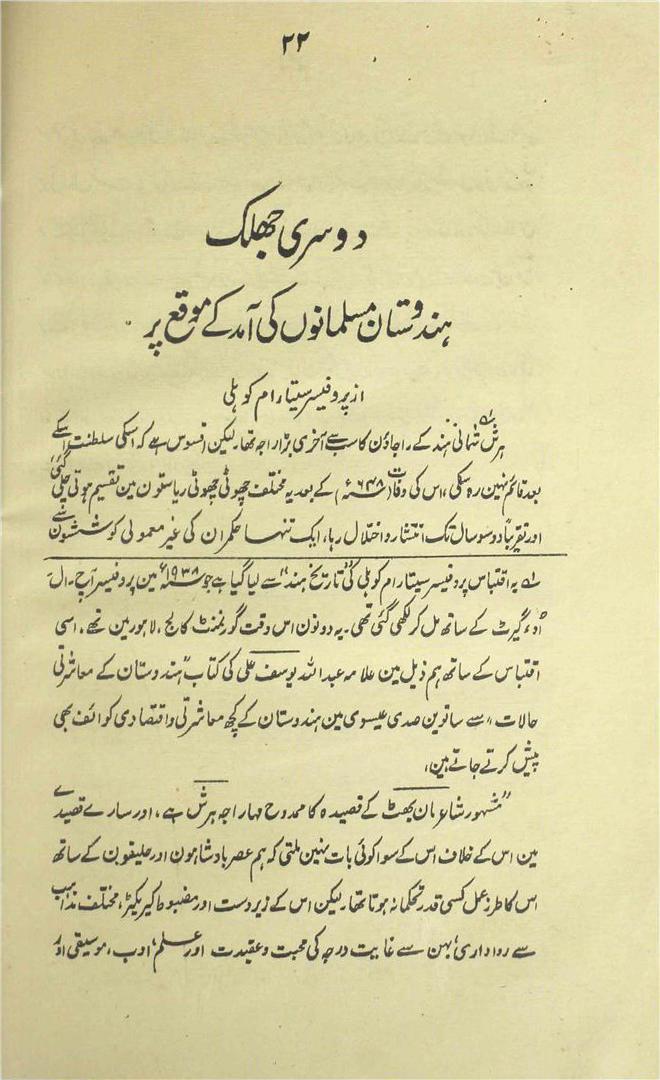 ۲۲
دوسری جھلک
ہندوستان مسلمانوں کی آمد کے موقع پر
از پروفیسر سیتا رام کوہلی
ہرش لہ شمالی ہند کے راجاؤن کا سب سے آخری بڑا راجہ تھا، لیکن افسوس ہے کہ اسکی سلطنت اسکے
بعد قائم نہین رہ سکی، اس کی وفات (۶۴۸ء) کے بعد یہ مختلف چھوٹی چھوٹی ریاستون مین تقسیم ہوتی چلی گئی
اور تقریباً دو سو سال تک انتشار و اختلال رہا، ایک تنہا حکمران کی غیر معمولی کوششون سے
لہ یہ اقتباس پروفیسر سیتا رام کوہلی کی "تاریخ ہند" سے لیا گیا ہے جو ۱۹۳۸ء مین پروفیسر ایچ۔ ال۔
او، گیرٹ کے ساتھ مل کر لکھی گئی تھی۔ یہ دونون اس وقت گورنمنٹ کالج، لاہور مین تھے، اسی
اقتباس کے ساتھ ہم ذیل مین علامہ عبداللہ یوسف علی کی کتاب "ہندوستان کے معاشرتی
حالات" سے ساتوین صدی عیسوی مین ہندوستان کے کچھ معاشرتی و اقتصادی کوائف بھی
پیش کرتے جاتے ہین،
"مشہور شاعر بان بھٹ کے قصیدہ کا ممدوح مہاراجہ ہرش ہے، اور سارے قصیدے
مین اس کے خلاف اس کے سوا کوئی بات نہین ملتی کہ ہم عصر بادشاہون اور حلیفون کے ساتھ
اس کا طرز عمل کسی قدر تحکمانہ ہوتا تھا، لیکن اس کے زبردست اور مضبوط کیریکٹر، مختلف مذاہب
سے رواداری، بہن سے غایت درجہ کی محبت و عقیدت اور علم، ادب، موسیقی اور